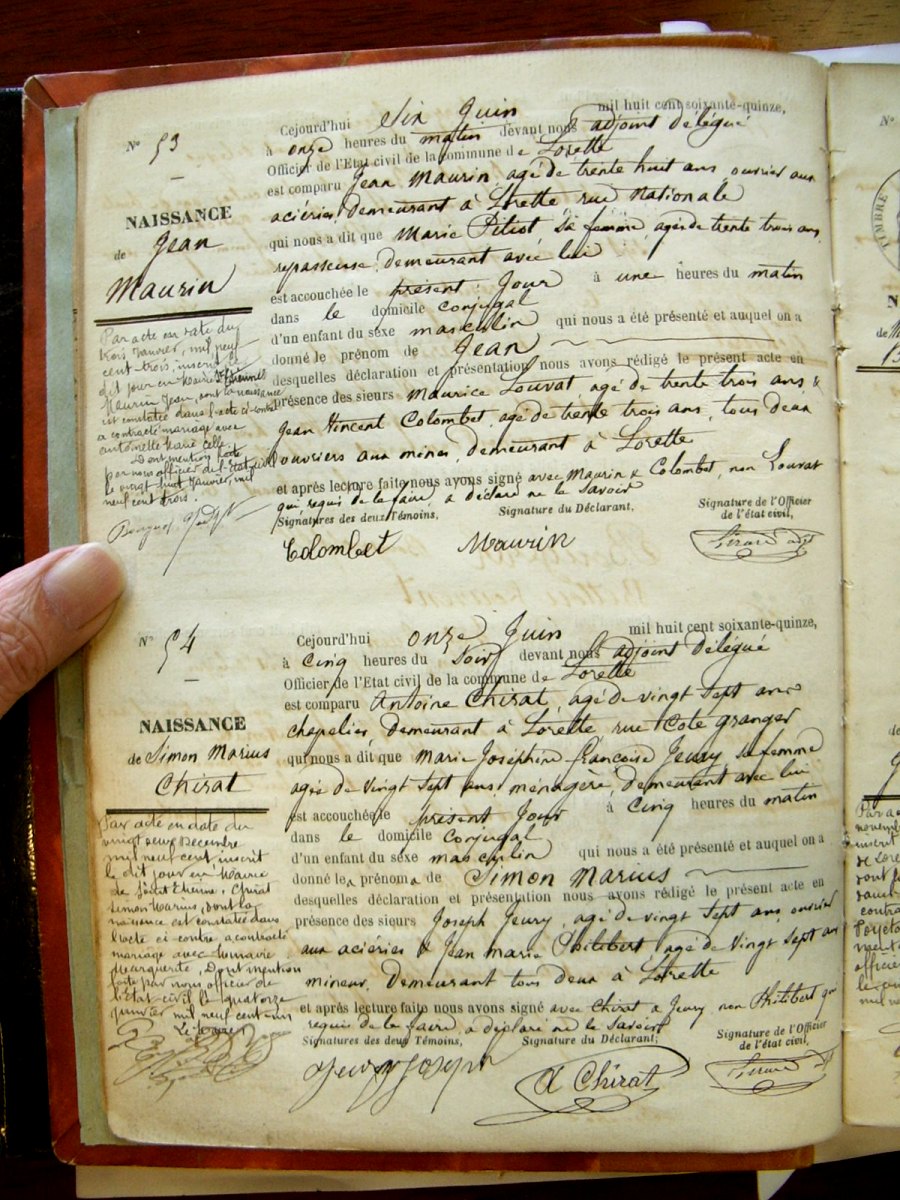 N° 53
NAISSANCE
de Jean
Maurin
Par acte en date du
trois Janvier, mil neuf
cent trois, inscrit le
dit jour en Mairie St Etienne
Maurin Jean, dont la naissance
est constatée dans l'acte ci-contre
a contracté mariage avec
Antoinette Marie Celle.
Dont mention faite
par nous officier de l'Etat civil
le vingt huit Janvier, mil
neuf cent trois.
Cejourd'hui Six Juin mil huit cent soixante-quinze,
à onze heures du matin devant nous adjoint délégué
Officier de l'Etat civil de la commune de Lorette
est comparu Jean Maurin agé de trente huit ans ouvrier aux
aciéries, demeurant à Lorette rue Nationale
qui nous a dit que Marie Pitiot sa femme, agée de trente trois ans,
repasseuse, demeurant avec lui
est accouchée le présent Jour à une heures du matin
dans le domicile conjugal
d'un enfant du sexe masculin qui nous a été présenté et auquel on a
donné le prénom de Jean
desquelles déclaration et présentation nous avons rédigé le présent acte en
présence des sieurs Maurice Louvat, agé de trente trois ans &
Jean Vincent Colombet, agé de trente trois ans, tous deux
ouvriers aux mines, demeurant à Lorette
et après lecture faite nous avons signé avec Maurin & Colombet, non Louvat
qui, requis de le faire, a déclaré ne le Savoir
Signatures des deux Témoins, Signature du Déclarant, Signature de l'Officier
de l'état civil,
Colombet Maurin
N° 54
NAISSANCE
de Simon Marius
Chirat
Par acte en date du
vingt deux Decembre
mil neuf cent, inscrit
le dit jour en Mairie
de Saint Etienne, Chirat
Simon Marius, dont la
naissance est constatée dans
l'acte ci-contre, a contracté
mariage avec
Marguerite, Dont mention
faite par nous officier de
l'Etat-civil le quatorze
janvier mil neuf cent un
Le Maire
Cejourd'hui onze Juin mil huit cent soixante-quinze,
à cinq heures du Soir devant nous adjoint délégué
Officier de l'Etat civil de la commune de Lorette
est comparu Antoine Chirat, agé de vingt Sept ans
chapelier, demeurant à Lorette rue Cote granger
qui nous a dit que Marie Joséphine Françoise Jeury sa femme
agée de vingt Sept ans ménagère, demeurant avec lui
est accouchée le présent Jour à Cinq heures du matin
dans le domicile conjugal
d'un enfant du sexe masculin qui nous a été présenté et auquel on a
donné les prénoms de Simon Marius
desquelles déclaration et présentation nous avons rédigé le présent acte en
présence des sieurs Joseph Jeury agé de vingt Sept ans, ouvrier
aux aciéries & Jean Marie Philibert agé de Vingt Sept ans
mineur, Demeurant tous deux à Lorette
et après lecture faite nous avons signé avec Chirat & Jeury, non Philibert qui
requis de le faire, a déclaré ne le Savoir
Signatures des deux Témoins, Signature du Déclarant, Signature de l'Officier
de l'état civil,
Jeury Joseph A Chirat
N°
TIMBRE